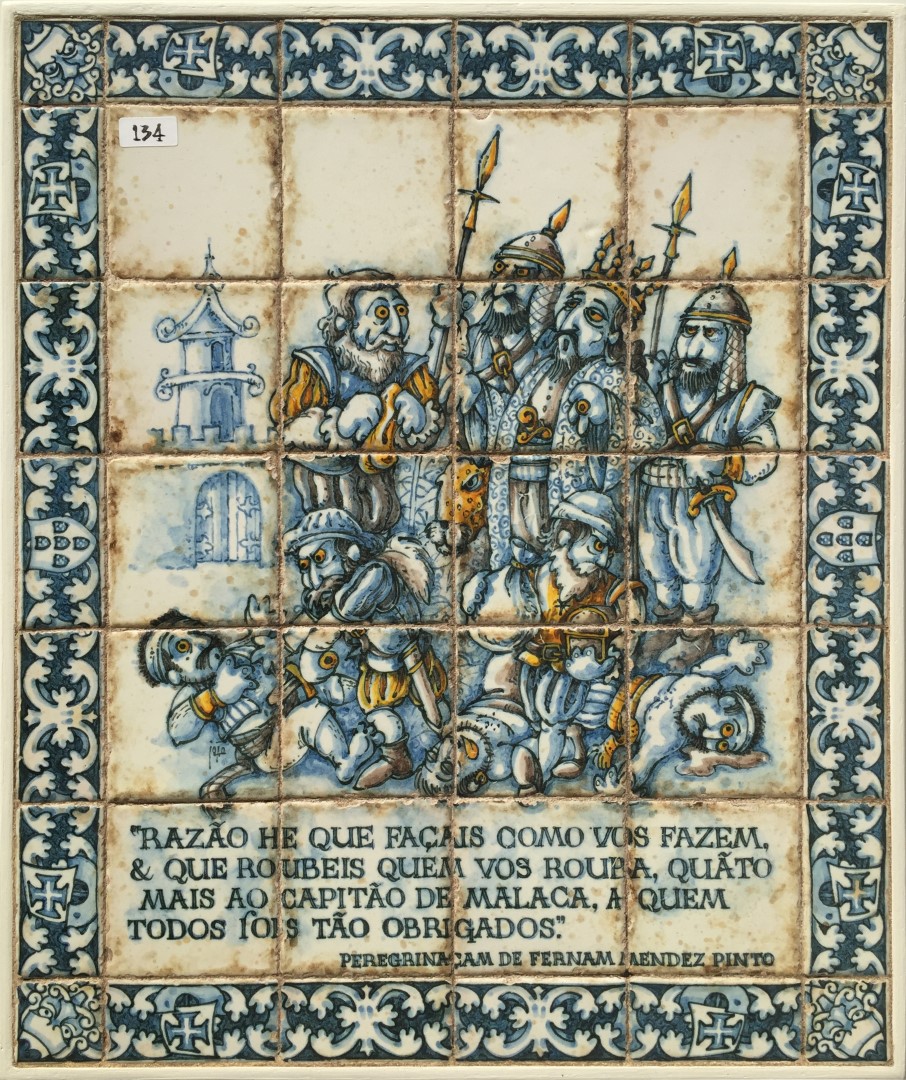 134
joao
"RAZÃO HE QUE FAÇAIS COMO VOS FAZEM,
& QUE ROUBEIS QUEM VOS ROUBA, QUÃTO
MAIS AO CAPITÃO DE MALACA, A QUEM
TODOS ſOIS TÃO OBRIGADOS."
PEREGRINAÇAM DE FERNAM MENDEZ PINTO